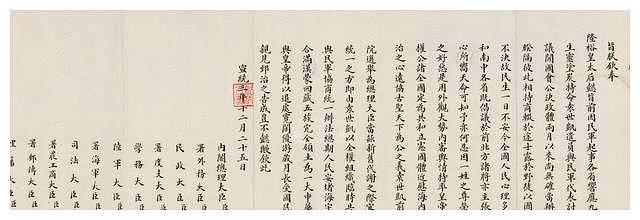 旨朕欽奉
隆裕皇太后懿旨前因民軍起事各省響應九
生靈塗炭特命袁世凱遣員與民軍代表討
議開國會公決政體兩月以來尚無確當辦
睽隔彼此相持商輟於途士露於野徒以國
不決故民生一日不安今全國人民心理多
和南中各省既倡議於前北方諸將亦主
心所嚮天命可知予亦何忍因一姓之尊
之好惡是用外觀大勢內審輿情特率皇帝
權公諸全國定為共和立憲國體近慰海內
治之心遠協古聖天下為公之義袁世凱前
院選舉為總理大臣當茲新舊代謝之際宜
統一之方即由袁世凱以全權組織臨時共
與民軍協商統一辦法總期人民安堵海宇
合滿漢蒙回藏五族完全領土為一大中華
與皇帝得以退處寬閒優游歲月長受國民
親見郅治之告成豈不懿歟欽此
宣統三年十二月二十五日
內閣總理大臣
署外務大臣
民政大臣
署度支大臣
學務大臣
陸軍大臣
署海軍大臣
司法大臣
署農工商大臣
署郵傳大臣
理藩大臣